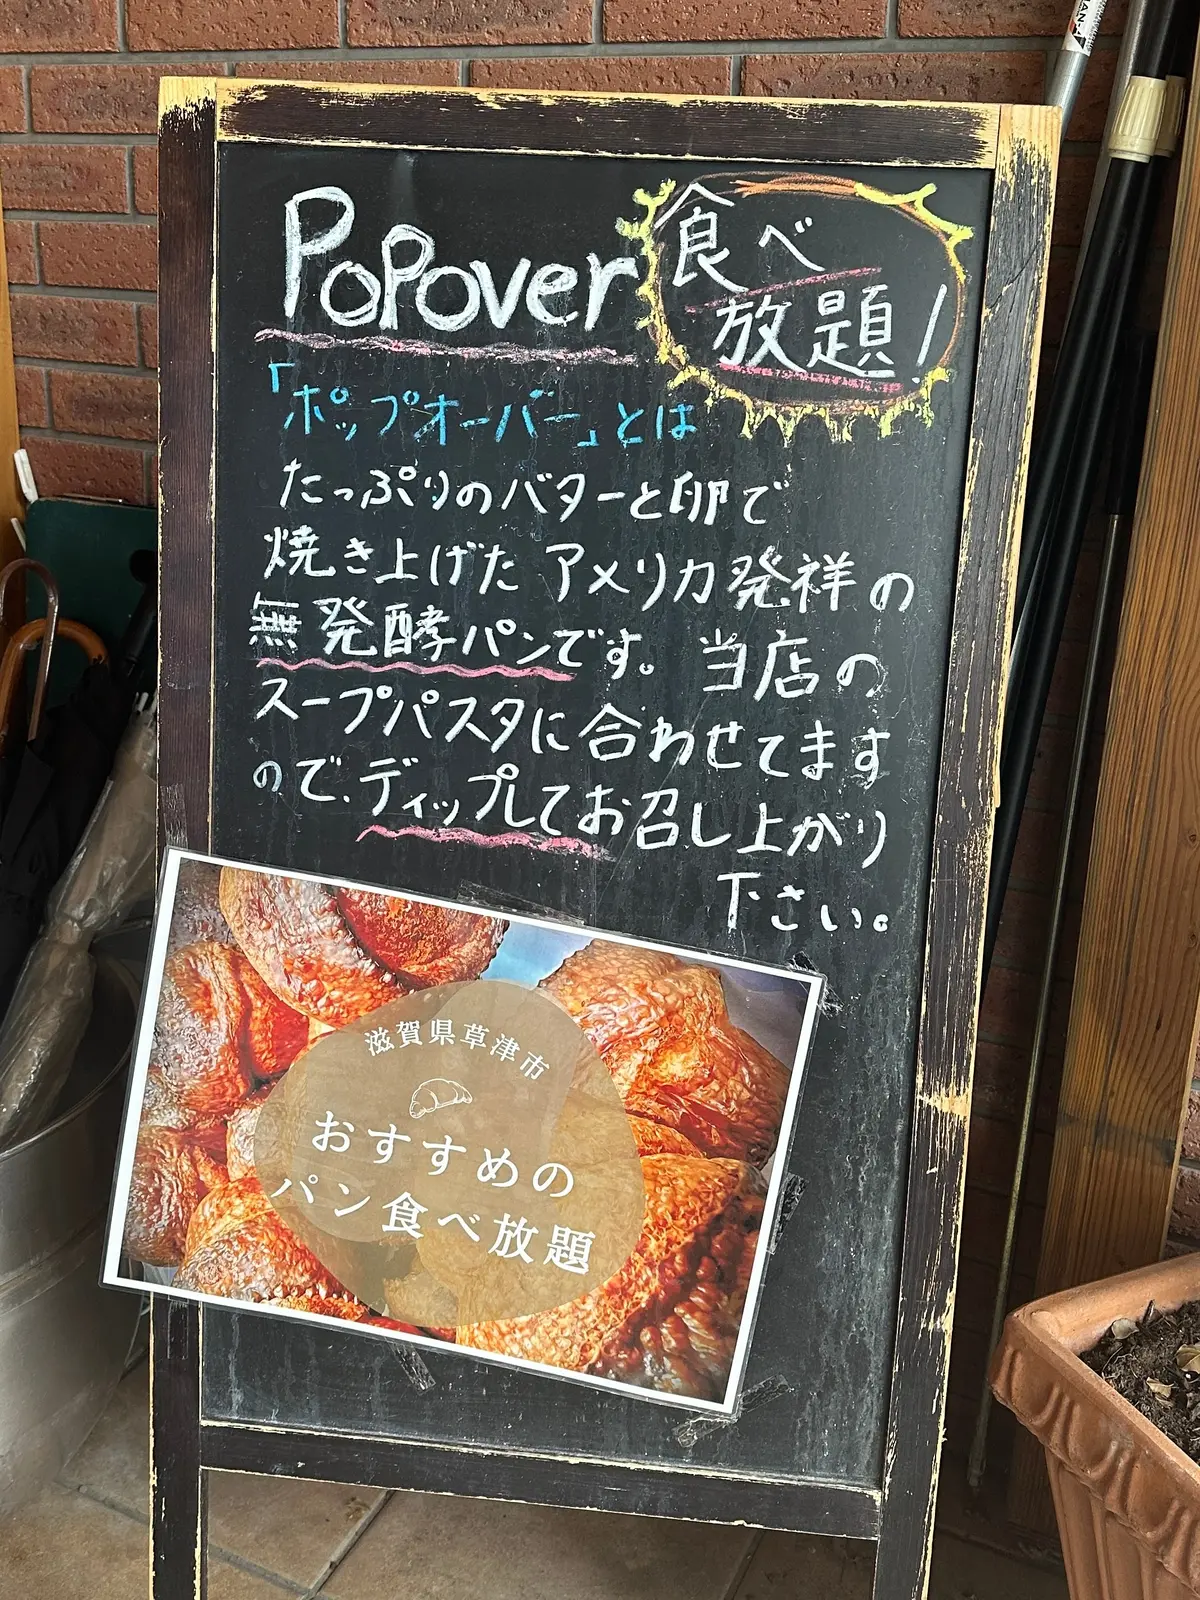 Popover
食べ
放題!
「ポップオーバー」とは
たっぷりのバターと卵で
焼き上げた アメリカ発祥の
無発酵パンです。当店の
スープパスタに合わせてます
ので、ディップしてお召し上がり
下さい。
滋賀県草津市
おすすめの
パン食べ放題